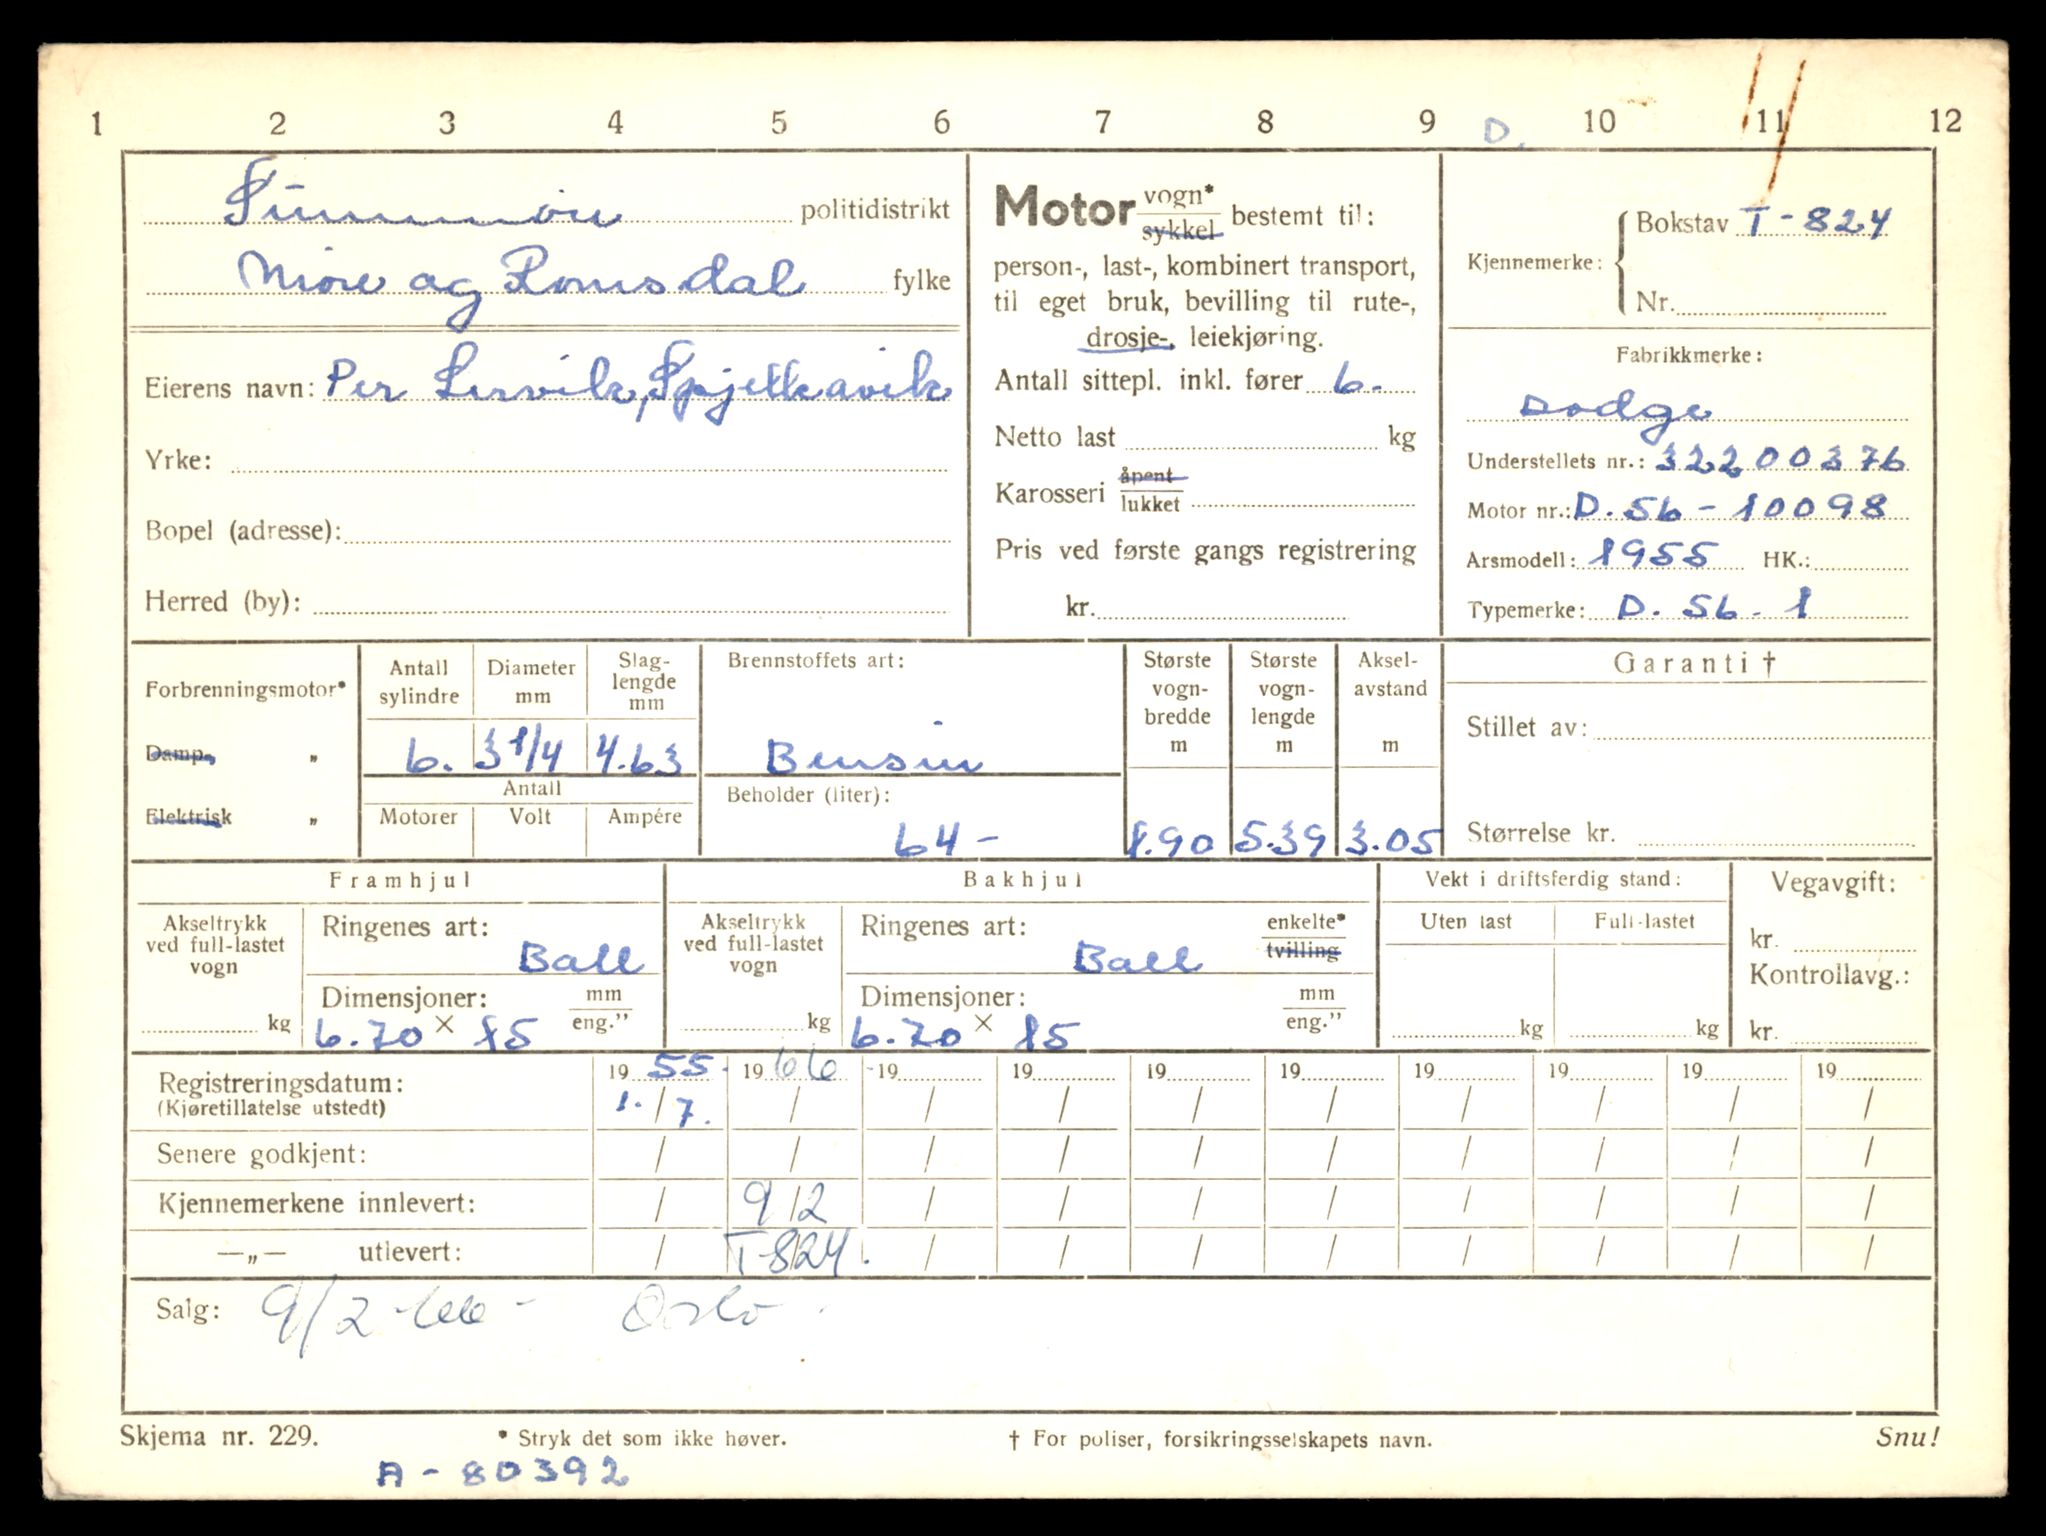 1 2 3 4 5 6 7 8 9 D. 10 11 12
Sunnmøre politidistrikt
Møre og Romsdal fylke
Eierens navn: Per Servik, Spjelkavik
Yrke:
Bopel (adresse):
Herred (by):
Motor vogn* / sykkel bestemt til:
person-, last-, kombinert transport,
til eget bruk, bevilling til rute-,
drosje-, leiekjøring.
Antall sittepl. inkl. fører 6.
Netto last kg
Karosseri åpent / lukket
Pris ved første gangs registrering
kr.
Kjennemerke: Bokstav T-824
Nr.
Fabrikkmerke:
Dodge
Understellets nr.: 32200376
Motor nr.: D.56-10098
Arsmodell: 1955 HK.:
Typemerke: D. 56-1
Forbrenningsmotor*
Damp- „
Elektrisk „
Antall sylindre 6.
Diameter mm 3 1/4
Slag-lengde mm 4.63
Antall
Motorer Volt Ampére
Brennstoffets art:
Bensin
Beholder (liter):
64-
Største vogn-bredde m 1.90
Største vogn-lengde m 5.39
Aksel-avstand m 3.05
Garanti †
Stillet av:
Størrelse kr.
Framhjul
Akseltrykk ved full-lastet vogn kg
Ringenes art: Ball
Dimensjoner: mm / eng."
6.70 × 15
Bakhjul
Akseltrykk ved full-lastet vogn kg
Ringenes art: Ball enkelte* / tvilling
Dimensjoner: mm / eng."
6.70 × 15
Vekt i driftsferdig stand:
Uten last Full-lastet
kg kg
Vegavgift:
kr.
Kontrollavg.:
kr.
Registreringsdatum: 19 55. 19 66 - 19 19 19 19 19 19 19 19
(Kjøretillatelse utstedt) 1. / 7. / / / / / / / / /
Senere godkjent: / / / / / / / / / /
Kjennemerkene innlevert: / 9/2 / / / / / / / /
—„— utlevert: / T-824. / / / / / / / /
Salg: 9/2-66 - Oslo
Skjema nr. 229. * Stryk det som ikke høver. † For poliser, forsikringsselskapets navn. Snu!
A-80392